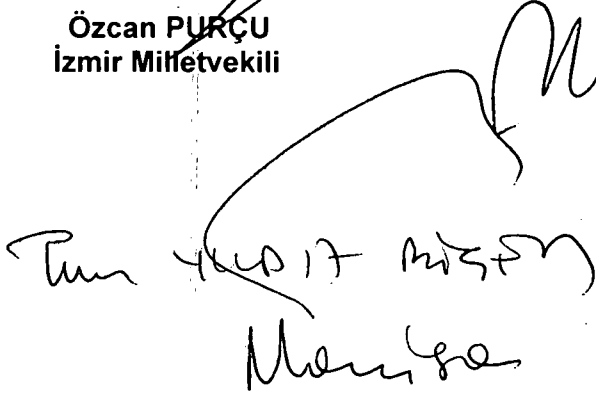 Özcan PURÇU
İzmir Milletvekili
Tur YILDIZ BİÇER
Manisa